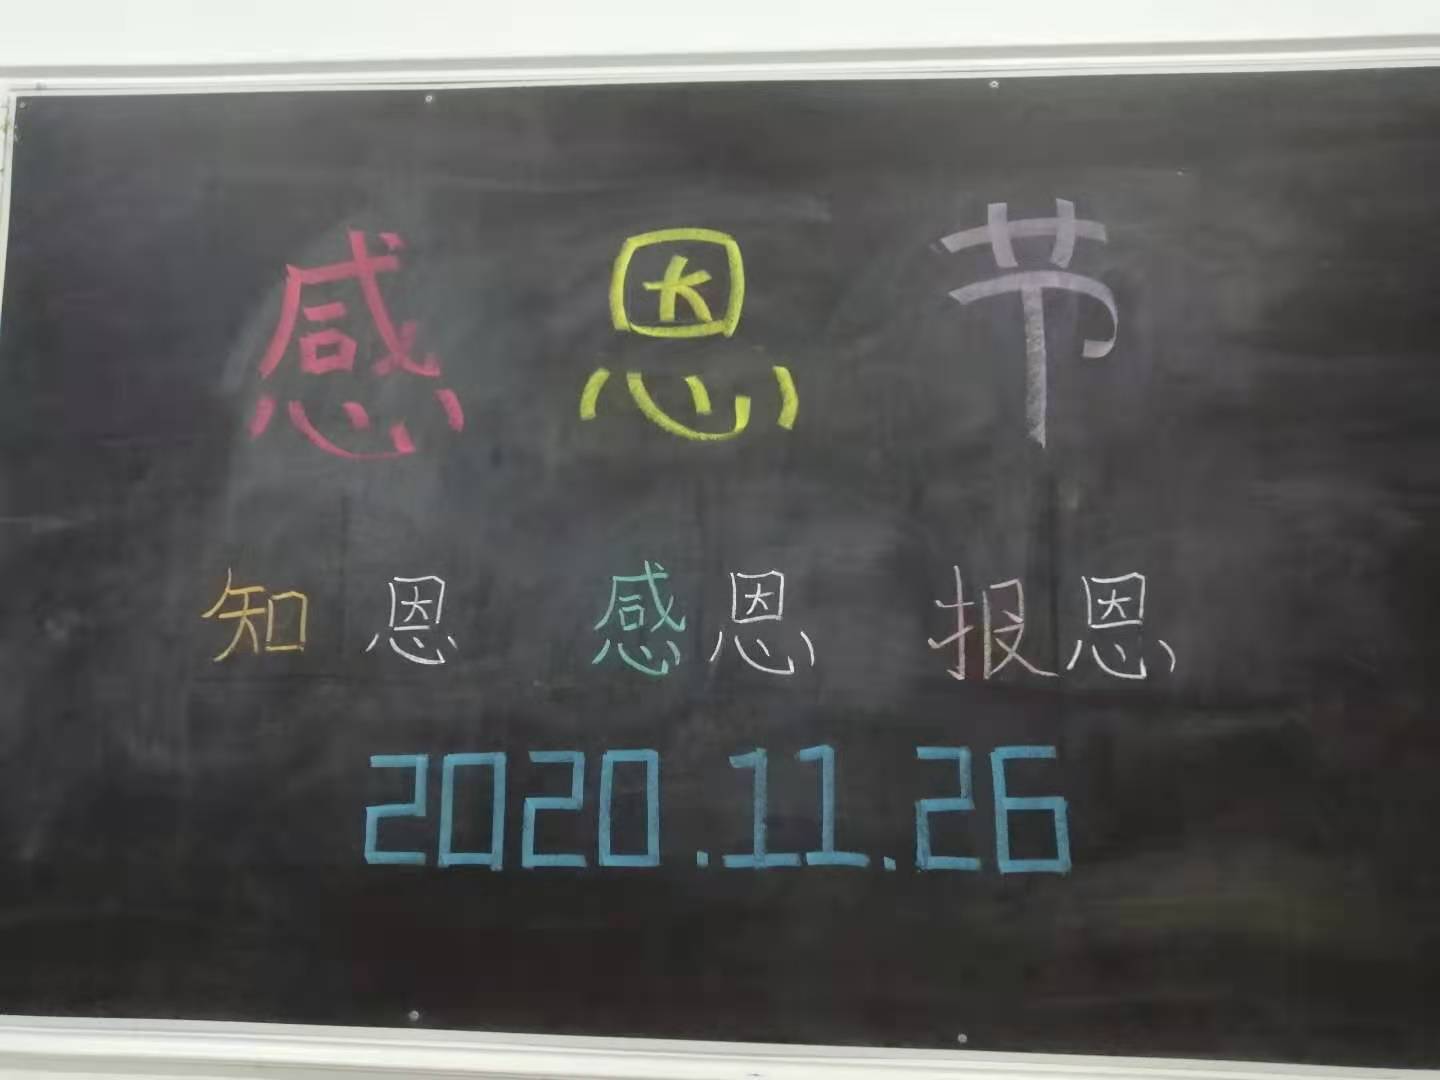 感恩节
知恩 感恩 报恩
2020.11.26